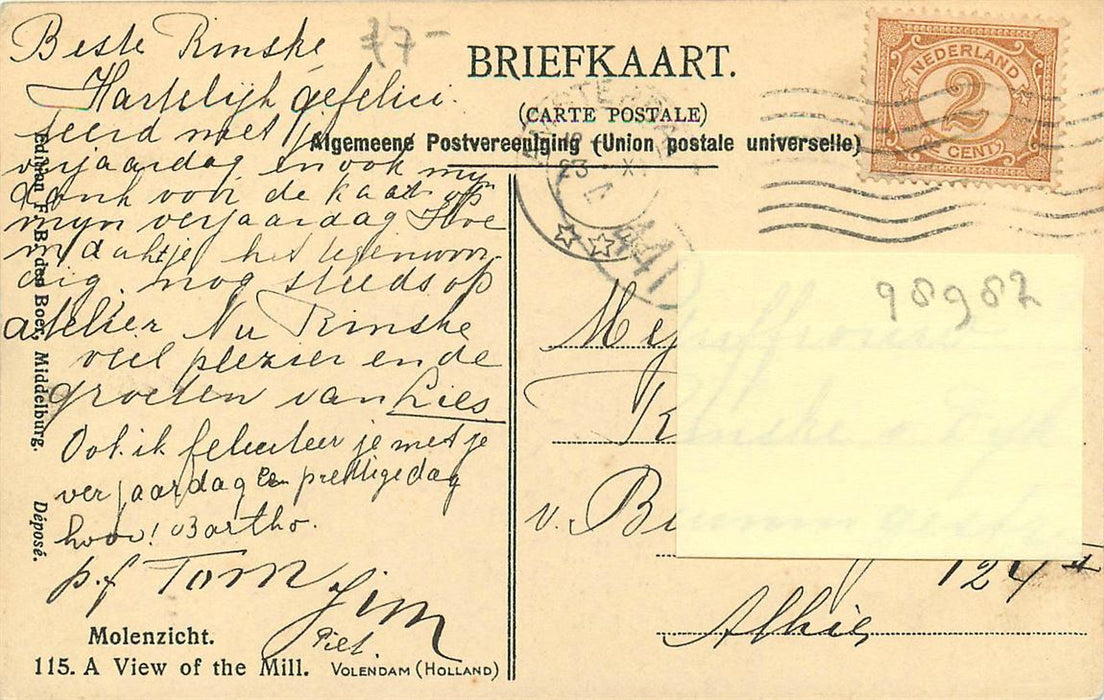 77-
BRIEFKAART.
(CARTE POSTALE)
Algemeene Postvereeniging (Union postale universelle)
NEDERLAND
2
CENT
Beste Rinske
Hartelijk gefelici
teerd met je
verjaardag en ook myn
dank voor de kaart op
myn verjaardag Hoe
het tegenwoor
dig, nog steeds op
atelier Nu Rinske
veel plezier en de
groeten van Lies
Ook ik feliciteer je met je
verjaardag Een prettige dag
hoor! Bartho.
p.f Tom Jim
Piet.
Edition F. B. den Boer, Middelburg. Déposé.
Molenzicht.
115. A View of the Mill. VOLENDAM (HOLLAND)
98982
Mejuffrouw
Rinske v Dyk
v. B
124
Alhier